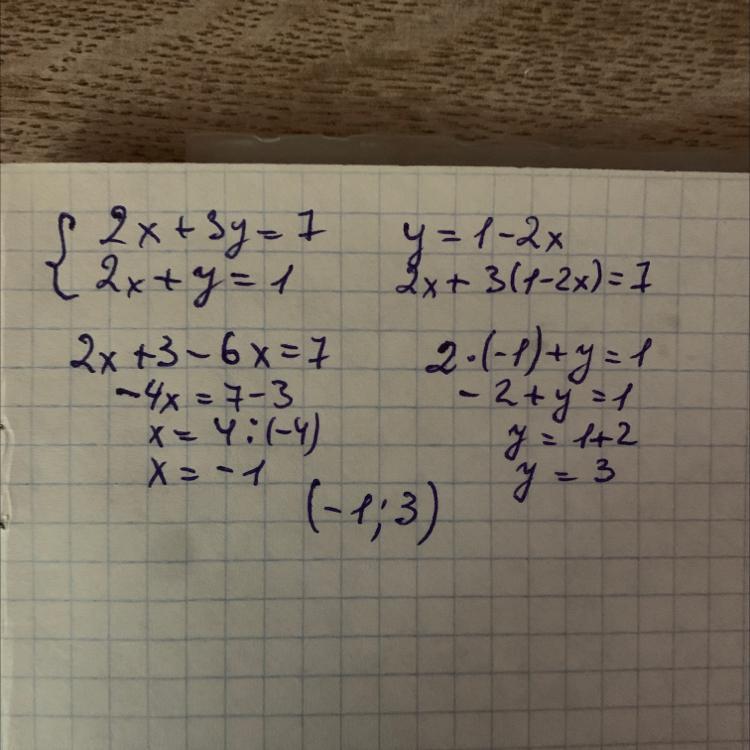 { 2x + 3y = 7
2x + y = 1
y = 1 - 2x
2x + 3(1-2x) = 7
2x + 3 - 6x = 7
-4x = 7 - 3
x = 4 : (-4)
x = -1
2 · (-1) + y = 1
- 2 + y = 1
y = 1 + 2
y = 3
(-1; 3)